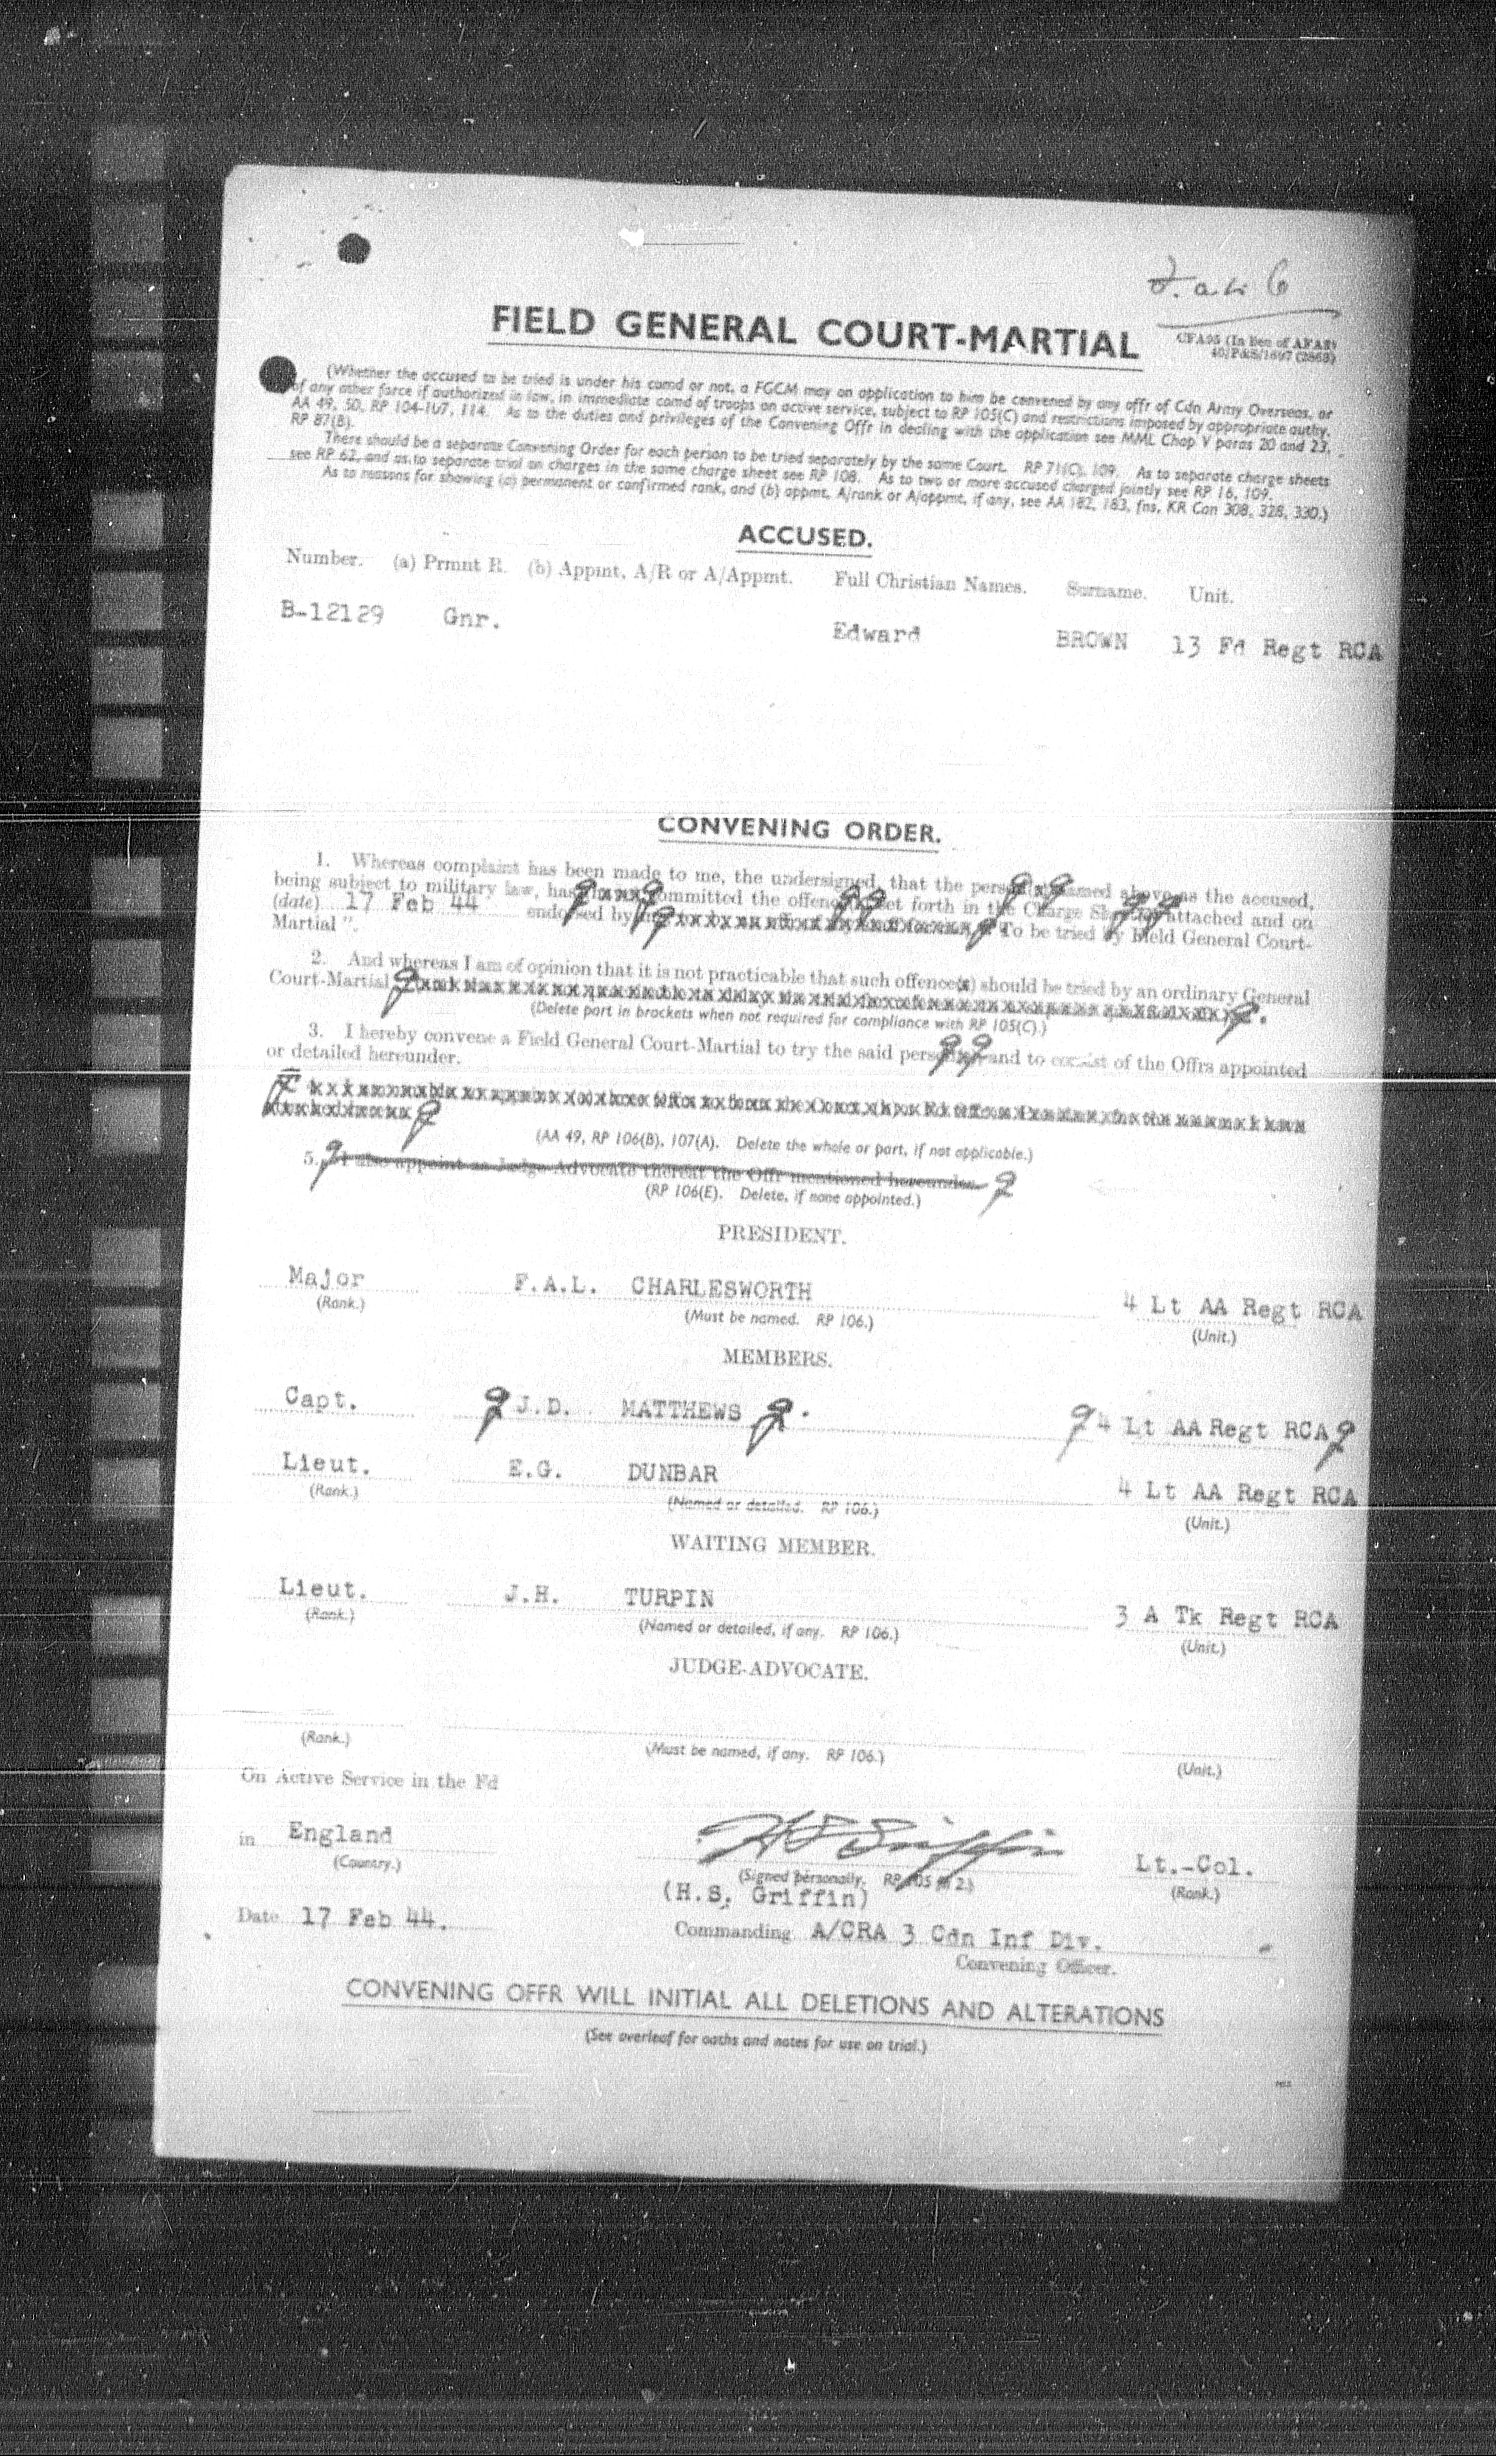 FIELD GENERAL COURT-MARTIAL
CFA95 (In lieu of AFA3)
40/P&S/1697 (2868)
(Whether the accused to be tried is under his comd or not, a FGCM may on application to him be convened by any offr of Cdn Army Overseas, or
of any other force if authorized in law, in immediate comd of troops on active service, subject to RP 105(C) and restrictions imposed by appropriate authy.
AA 49, 50, RP 104-107, 114. As to the duties and privileges of the Convening Offr in dealing with the application see MML Chap V paras 20 and 23,
RP 87(B).
There should be a separate Convening Order for each person to be tried separately by the same Court. RP 71(C), 109. As to separate charge sheets
see RP 62, and as to separate trial on charges in the same charge sheet see RP 108. As to two or more accused charged jointly see RP 16, 109.
As to reasons for showing (a) permanent or confirmed rank, and (b) appmt, A/rank or A/appmt, if any, see AA 182, 183, fns, KR Can 308, 328, 330.)
ACCUSED.
Number. (a) Prmnt R. (b) Appmt, A/R or A/Appmt. Full Christian Names. Surname. Unit.
B-12129 Gnr. Edward BROWN 13 Fd Regt RCA
CONVENING ORDER.
1. Whereas complaint has been made to me, the undersigned, that the person named above as the accused,
being subject to military law, has committed the offence set forth in the Charge Sheet attached and on
(date) 17 Feb 44 endorsed by "To be tried by Field General Court-
Martial".
2. And whereas I am of opinion that it is not practicable that such offence(s) should be tried by an ordinary General
Court-Martial
(Delete part in brackets when not required for compliance with RP 105(C).)
3. I hereby convene a Field General Court-Martial to try the said person and to consist of the Offrs appointed
or detailed hereunder.
(AA 49, RP 106(B), 107(A). Delete the whole or part, if not applicable.)
5. I also appoint as Judge Advocate thereat the Offr mentioned hereunder
(RP 106(E). Delete, if none appointed.)
PRESIDENT.
Major F.A.L. CHARLESWORTH 4 Lt AA Regt RCA
(Rank.) (Must be named. RP 106.) (Unit.)
MEMBERS.
Capt. J.D. MATTHEWS. 4 Lt AA Regt RCA
Lieut. E.G. DUNBAR 4 Lt AA Regt RCA
(Rank.) (Named or detailed. RP 106.) (Unit.)
WAITING MEMBER.
Lieut. J.H. TURPIN 3 A Tk Regt RCA
(Rank.) (Named or detailed, if any. RP 106.) (Unit.)
JUDGE-ADVOCATE.
(Rank.) (Must be named, if any. RP 106.) (Unit.)
On Active Service in the Fd
in England H S Griffin Lt.-Col.
(Country.) (Signed personally. RP 105 fn 2.) (Rank.)
(H.S. Griffin)
Date 17 Feb 44. Commanding A/CRA 3 Cdn Inf Div.
Convening Officer.
CONVENING OFFR WILL INITIAL ALL DELETIONS AND ALTERATIONS
(See overleaf for oaths and notes for use on trial.)